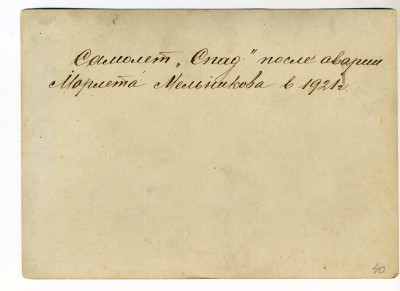 Самолет „Спад" после аварии
Морлета Мельникова в 1921 г.
40